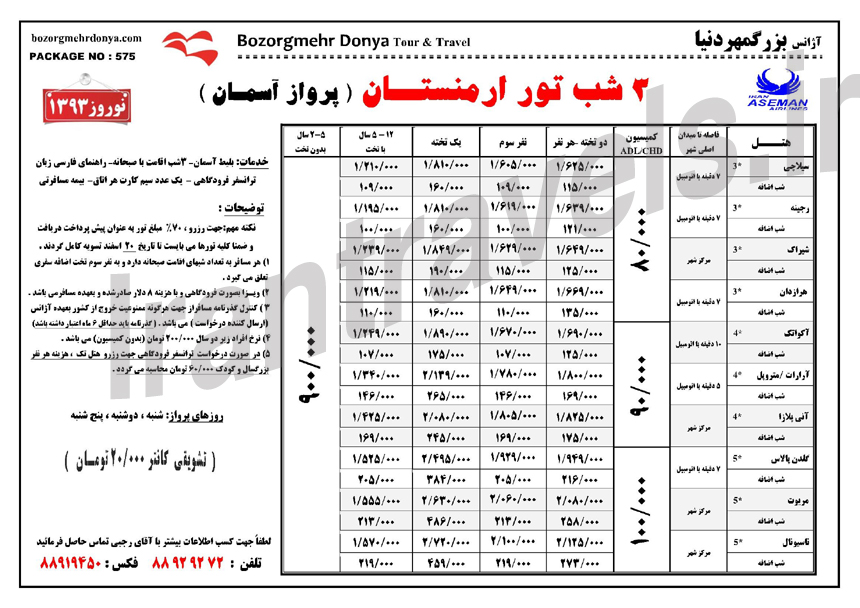 آژانس بزرگمهر دنیا
Bozorgmehr Donya Tour & Travel
bozorgmehrdonya.com
PACKAGE NO : 575
۳ شب تور ارمنستان ( پرواز آسمان )
IRAN
ASEMAN
AIRLINES
نوروز ۱۳۹۳
هتل فاصله تا میدان اصلی شهر کمیسیون ADL/CHD دو تخته -هر نفر نفر سوم یک تخته ۱۲ – ۵ سال با تخت ۵-۲ سال بدون تخت
سیلاچی 3* ۷ دقیقه با اتومبیل ۸۰/۰۰۰ ۱/۶۲۵/۰۰۰ ۱/۶۰۵/۰۰۰ ۱/۸۱۰/۰۰۰ ۱/۲۱۰/۰۰۰ ۹۰۰/۰۰۰
شب اضافه ۱۱۵/۰۰۰ ۱۰۹/۰۰۰ ۱۶۰/۰۰۰ ۱۰۹/۰۰۰
رجینه 3* ۷ دقیقه با اتومبیل ۱/۶۳۹/۰۰۰ ۱/۶۱۹/۰۰۰ ۱/۸۱۰/۰۰۰ ۱/۱۹۵/۰۰۰
شب اضافه ۱۲۱/۰۰۰ ۱۰۰/۰۰۰ ۱۶۰/۰۰۰ ۱۰۰/۰۰۰
شیراک 3* مرکز شهر ۱/۶۴۹/۰۰۰ ۱/۶۲۹/۰۰۰ ۱/۸۴۹/۰۰۰ ۱/۲۳۹/۰۰۰
شب اضافه ۱۲۵/۰۰۰ ۱۱۵/۰۰۰ ۱۹۰/۰۰۰ ۱۱۵/۰۰۰
هرازدان 3* ۷ دقیقه با اتومبیل ۱/۶۶۹/۰۰۰ ۱/۶۴۹/۰۰۰ ۱/۸۱۰/۰۰۰ ۱/۲۱۹/۰۰۰
شب اضافه ۱۳۵/۰۰۰ ۱۱۰/۰۰۰ ۱۶۰/۰۰۰ ۱۱۰/۰۰۰
آکواتک 4* ۱۰ دقیقه با اتومبیل ۹۰/۰۰۰ ۱/۶۹۰/۰۰۰ ۱/۶۷۰/۰۰۰ ۱/۸۹۰/۰۰۰ ۱/۲۴۹/۰۰۰
شب اضافه ۱۲۵/۰۰۰ ۱۰۷/۰۰۰ ۱۷۵/۰۰۰ ۱۰۷/۰۰۰
آرارات /متروپل 4* ۵ دقیقه با اتومبیل ۱/۸۰۰/۰۰۰ ۱/۷۸۰/۰۰۰ ۲/۱۳۹/۰۰۰ ۱/۳۴۰/۰۰۰
شب اضافه ۱۶۹/۰۰۰ ۱۴۶/۰۰۰ ۲۶۵/۰۰۰ ۱۴۶/۰۰۰
آنی پلازا 4* مرکز شهر ۱/۸۲۵/۰۰۰ ۱/۸۰۵/۰۰۰ ۲/۰۸۰/۰۰۰ ۱/۴۲۵/۰۰۰
شب اضافه ۱۷۵/۰۰۰ ۱۶۹/۰۰۰ ۲۴۵/۰۰۰ ۱۶۹/۰۰۰
گلدن پالاس 5* ۷ دقیقه با اتومبیل ۱۰۰/۰۰۰ ۱/۹۴۹/۰۰۰ ۱/۹۲۹/۰۰۰ ۲/۴۹۵/۰۰۰ ۱/۵۲۵/۰۰۰
شب اضافه ۲۱۶/۰۰۰ ۲۰۵/۰۰۰ ۳۸۴/۰۰۰ ۲۰۵/۰۰۰
مریوت 5* مرکز شهر ۲/۰۸۰/۰۰۰ ۲/۰۶۰/۰۰۰ ۲/۶۳۰/۰۰۰ ۱/۵۵۵/۰۰۰
شب اضافه ۲۵۸/۰۰۰ ۲۱۳/۰۰۰ ۴۸۶/۰۰۰ ۲۱۳/۰۰۰
ناسیونال 5* مرکز شهر ۲/۱۲۵/۰۰۰ ۲/۱۰۰/۰۰۰ ۲/۷۲۰/۰۰۰ ۱/۵۷۰/۰۰۰
شب اضافه ۲۷۳/۰۰۰ ۲۱۹/۰۰۰ ۴۵۹/۰۰۰ ۲۱۹/۰۰۰
خدمات: بلیط آسمان- ۳شب اقامت با صبحانه- راهنمای فارسی زبان
ترانسفر فرودگاهی - یک عدد سیم کارت هر اتاق- بیمه مسافرتی
توضیحات :
نکته مهم:جهت رزرو ، ۷۰٪ مبلغ تور به عنوان پیش پرداخت دریافت
و ضمنا کلیه تورها می بایست تا تاریخ ۲۰ اسفند تسویه کامل گردند .
۱) هر مسافر به تعداد شبهای اقامت صبحانه دارد و به نفر سوم تخت اضافه سفری
تعلق می گیرد .
۲) ویـزا بصورت فرودگاهی و با هزینه ۸ دلار صادرشده و بعهده مسافرمی باشد .
۳ ) کنترل گذرنامه مسافراز جهت هرگونه ممنوعیت خروج از کشور بعهده آژانس
(ارسال کننده درخواست ) می باشد . ( گذرنامه باید حداقل ۶ ماه اعتبار داشته باشد)
۴) نرخ افراد زیر دو سال ۲۰۰/۰۰۰ تومان (بدون کمیسیون) می باشد .
۵) در صورت درخواست ترانسفر فرودگاهی جهت رزرو هتل تک ، هزینه هر نفر
بزرگسال و کودک ۶۰/۰۰۰ تومان محاسبه می گردد .
روزهای پرواز: شنبه ، دوشنبه ، پنج شنبه
( تشویقی کانتر ۲۰/۰۰۰ تومان )
لطفاً جهت کسب اطلاعات بیشتر با آقای رجبی تماس حاصل فرمائید
تلفن : ۸۸ ۹۲ ۹۲ ۷۲ فکس : ۸۸۹۱۹۴۵۰
Irantravels.ir